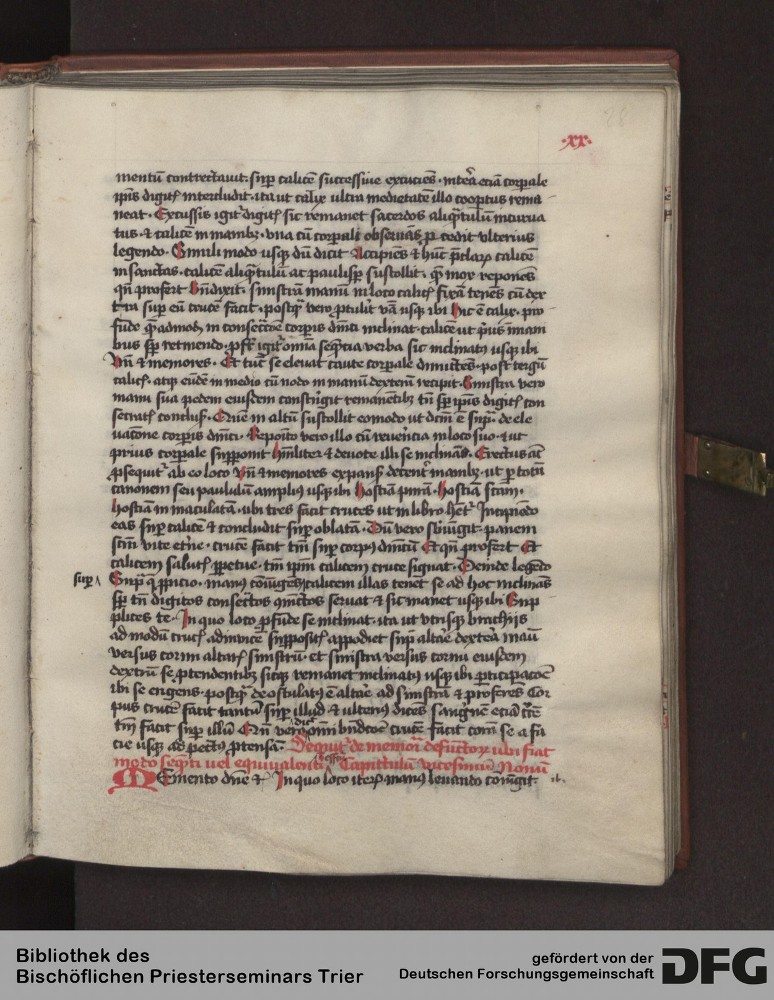 28
·xx·
mentū contrectauit. sup calicē successiue excuciēs. interī eciā corpale
ipis digitis intercludit. ita ut calix ultra medietatē illo coop̄tus rema
neat. Excussis igit digitis sic remanet sacerdos aliqntulum incurua
tus. & calicē in manibz. vna cū corpali observās. p cedit vlterius
legendo. Simili modo usqz dū dicit Accipiēs & hūc pclarū calicē
in sanctas. calicē aliqntulū ac paulisp sustollit. que mox reponēs
qn profert Bndixit. sinistrā manū in loco calicis fixā tenēs cū dex
tra sup eū crucē facit. postq vero ptulit vā usqz ibi hic ē calix. pro
fūde q admodū in consecrōne corpis dnici inclinat. calicē ut prius mani
bus sp retinendo. post igit omīa sequēcia verba sic inclinatus usqz ibi
Vn & memores. Et tūc se elevat caute corpale dimittēs. post tergū
calicis. atqz eūdē in medio cū nodo in manū dexterā recipit. Sinistra vero
manu sua pedem eiusdem constringit remanētibz tn sp ipis digitis con
secratis conclusis. Quē in altū sustollit eomodo ut dcm ē sup. de ele
uacōne corpis dnici. Reposito vero illo cū reuencia in loco suo. & ut
prius corpale supponit humiliter & deuote illi se inclinās. Erectus aut
psequit ab eo loco Vn & memores expansis decent manibz. ut p totū
canonem seu paululū amplius usqz ibi hostiā purā. hostiā scam.
hostiā in maculatā. ubi tres facit cruces ut in libro hetr Incipiēdo
eas sup calicē & concludit sup oblatā. Dū vero sbiūgit. panem
scm vite etne. crucē facit tm sup corpus dnicū Et qn profert Et
calicem salutis ppetue. tm ipm calicem cruce signat. Deinde legēdo
sup Supra q ppicio. manus cōiūgens calicem illas tenet se ad hoc inclinās
sp tn digitos consecratos iunctos seruat & sic manet usqz ibi Sup
plices te. In quo loco pfūde se inclinat. ita ut vtrisqz brachiis
ad modū crucis adinvicē suppositis appodiet sup altare dexterā manū
versus cornu altaris sinistrū. et sinistrā versus cornu eiusdem
dextrū se ptendentibz sicqz remanet inclinatus usqz ibi pticipacōe
ibi se erigens. postq deosculatus ē altare ad sinistrā & proferēs Cor
pus crucē facit tantū sup illud & ulterius dicēs sanguinē eciā crucē
tm facit sup illū Cū vero dicit omni bndictōe crucē facit corā se a fa
cie usqz ad pectus ptensā. Sequit de memoria defunctorum ubi fiat
modo sequēti vel equiualenti Capitulum vicesimum Nonum
Memento dne &c In quo loco iterū manus leuando coniūgit.
Bibliothek des
Bischöflichen Priesterseminars Trier
gefördert von der
Deutschen Forschungsgemeinschaft DFG